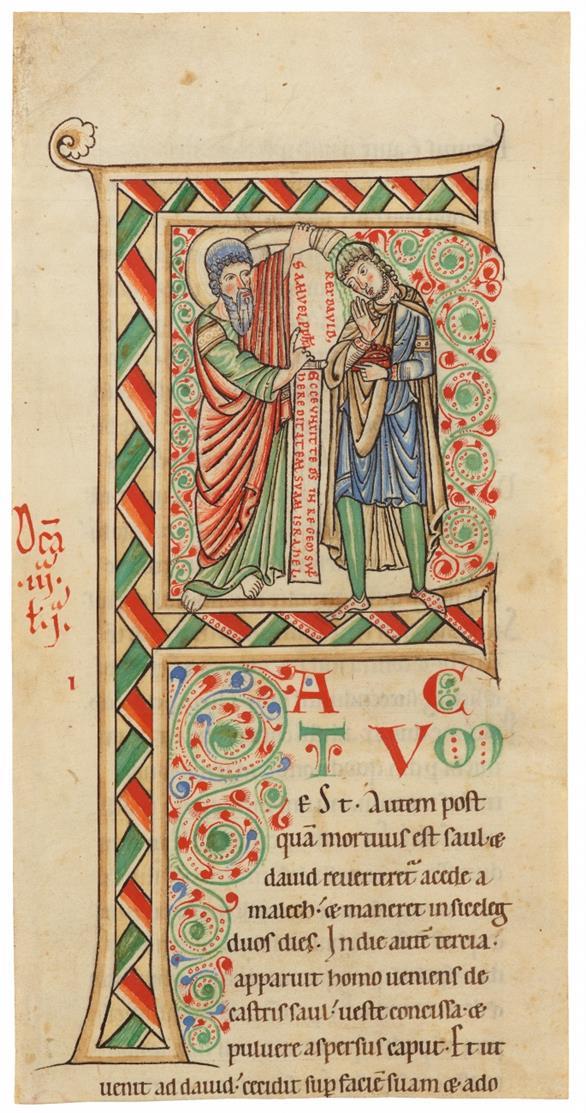 SAMVEL PPHA
REX DAVID,
ECCE VNXIT TE DS IN REGEM SVP
HEREDITATEM SVAM ISRAHEL.
.iij.
F A C
T V M
E S t. Autem post
quā mortuus est saul. &
dauid reuerteret᷑ acede a
malech: & maneret in siceleg
duos dies. In die autē tercia.
apparuit homo ueniens de
castris saul: ueste concissa. &
puluere aspersus caput. Et ut
uenit ad dauid: cecidit sup faciē suam & ado